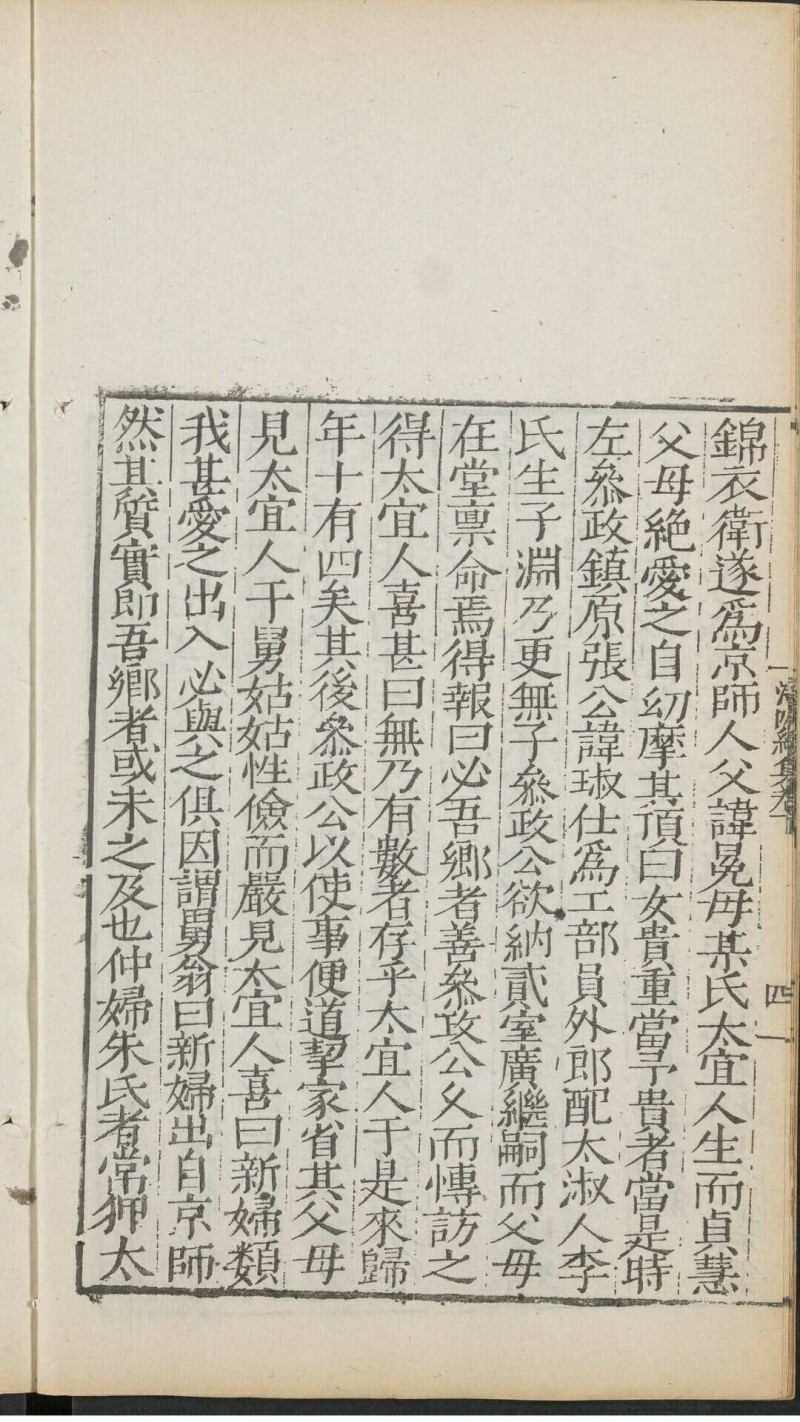 錦衣衛遂爲京師人父諱冕母某氏太宜人生而貞慧
父母絶愛之自幼摩其頂曰女貴重當予貴者當是時
左叅政鎮原張公諱琡仕爲工部員外郎配太淑人李
氏生子淵乃更無子叅政公欲納貳室廣繼嗣而父母
在堂禀命焉得報曰必吾鄉者善叅政公乆而慱訪之
得太宜人喜甚曰無乃有數者存乎太宜人于是來歸
年十有四矣其後叅政公以使事便道挈家省其父母
見太宜人于舅姑姑性儉而嚴見太宜人喜曰新婦類
我甚愛之出入必與之俱因謂舅翁曰新婦出自京師
然其質實即吾鄉者或未之及也仲婦朱氏者常狎太
四